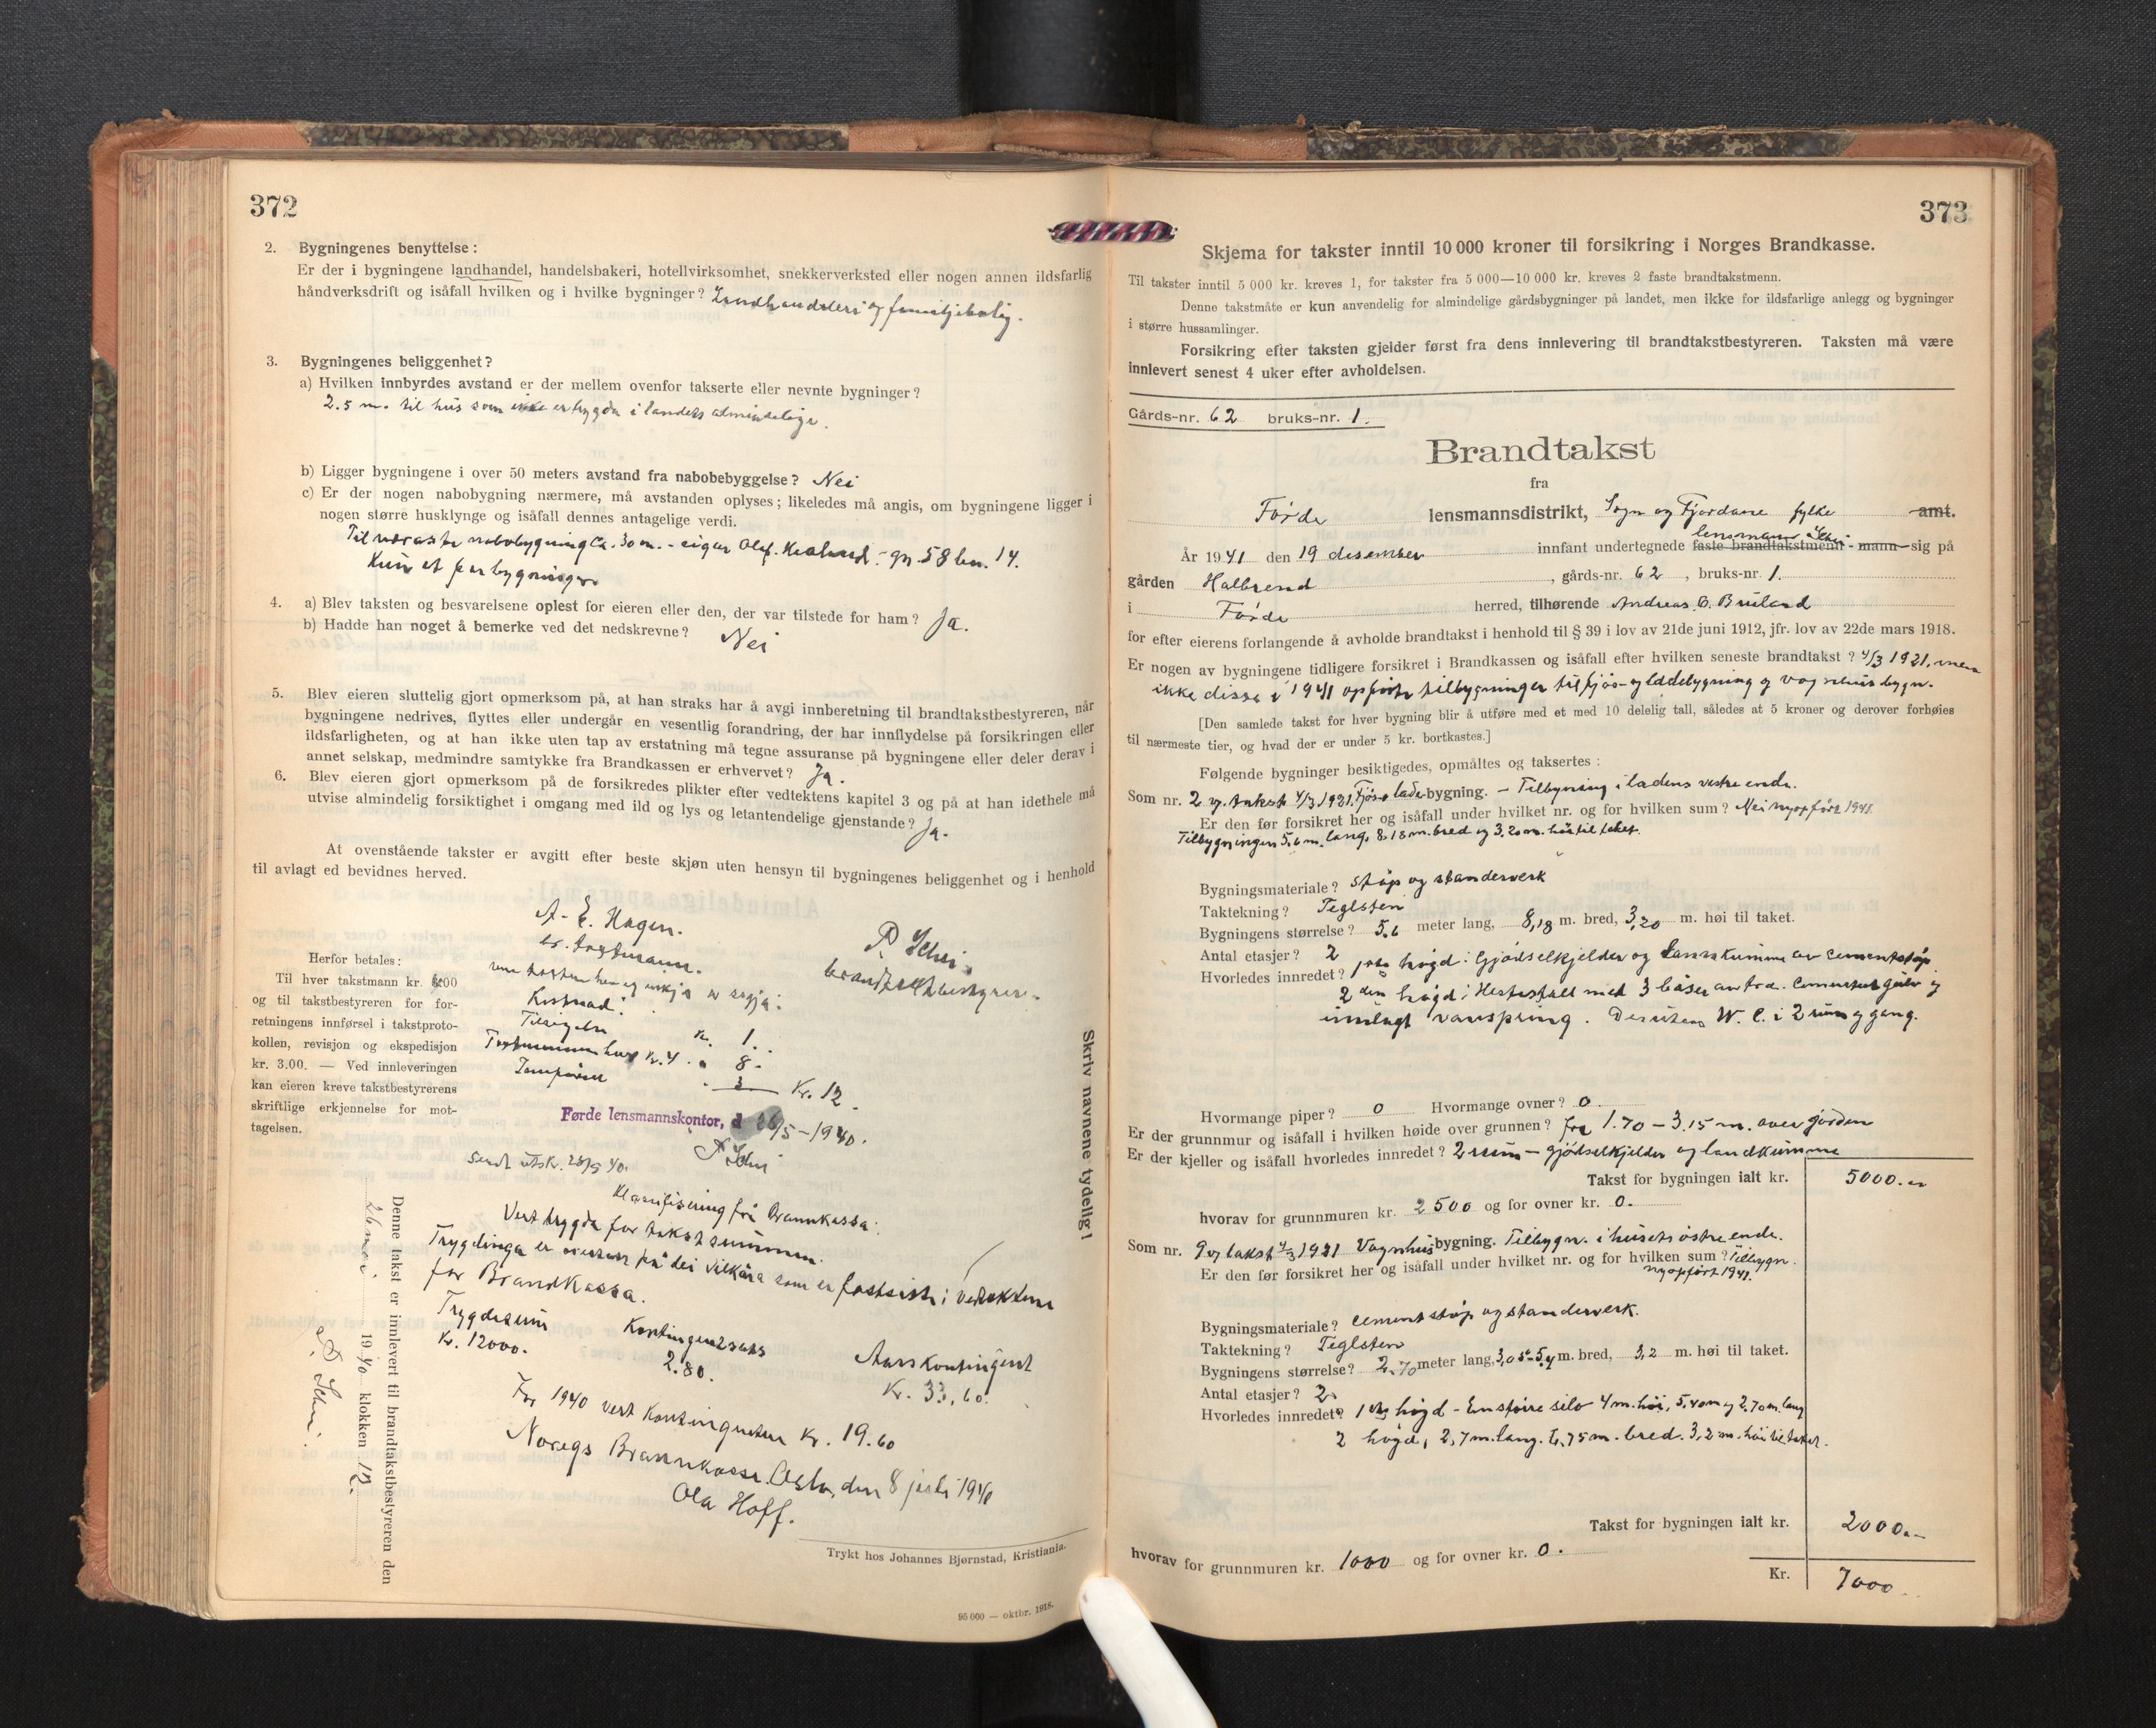 372
2. Bygningenes benyttelse:
Er der i bygningene landhandel, handelsbakeri, hotellvirksomhet, snekkerverksted eller nogen annen ildsfarlig
håndverksdrift og isåfall hvilken og i hvilke bygninger? Landhandleri og familjebolig.
3. Bygningenes beliggenhet?
a) Hvilken innbyrdes avstand er der mellem ovenfor takserte eller nevnte bygninger?
2.5 m. til hus som ikke er bygda i landets almindelige.
b) Ligger bygningene i over 50 meters avstand fra nabobebyggelse? Nei
c) Er der nogen nabobygning nærmere, må avstanden oplyses; likeledes må angis, om bygningene ligger i
nogen større husklynge og isåfall dennes antagelige verdi.
Til næraste nabobygning ca. 30 m. - eigar Olaf gn. 58 bn. 14.
Kun et par bygninger
4. a) Blev taksten og besvarelsene oplest for eieren eller den, der var tilstede for ham? Ja.
b) Hadde han noget å bemerke ved det nedskrevne? Nei
5. Blev eieren sluttelig gjort opmerksom på, at han straks har å avgi innberetning til brandtakstbestyreren, når
bygningene nedrives, flyttes eller undergår en vesentlig forandring, der har innflydelse på forsikringen eller
ildsfarligheten, og at han ikke uten tap av erstatning må tegne assuranse på bygningene eller deler derav i
annet selskap, medmindre samtykke fra Brandkassen er erhvervet? Ja.
6. Blev eieren gjort opmerksom på de forsikredes plikter efter vedtektens kapitel 3 og på at han idethele må
utvise almindelig forsiktighet i omgang med ild og lys og letantendelige gjenstande? Ja.
At ovenstående takster er avgitt efter beste skjøn uten hensyn til bygningenes beliggenhet og i henhold
til avlagt ed bevidnes herved.
A. E. Hagen.
P. Schei.
brandtakstbestyrer.
Herfor betales:
Til hver takstmann kr. 00
og til takstbestyreren for for-
retningens innførsel i takstproto-
kollen, revisjon og ekspedisjon
kr. 3.00. — Ved innleveringen
kan eieren kreve takstbestyrerens
skriftlige erkjennelse for mot-
tagelsen.
Kostnad:
Tilsigelse kr. 1.
kr. 4. " 8.
" 3 Kr. 12.
Førde lensmannskontor, d 26/5-1940.
P Schei
Sendt utskr. 28/5 40.
Klassifisering frå Brannkassa:
Vert trygda for takstsummen.
Trygdinga er overteke på dei vilkåra som er fastsette i vedtektene
for Brandkassa.
Trygdesum Kontingentsats Aarskontingent
Kr. 12000. 2.80. Kr. 33,60.
For 1940 vert kontingenten kr. 19.60
Noregs Brannkasse. Oslo, den 8 juli 1940
Ola Hoff.
Denne takst er innlevert til brandtakstbestyreren den
26 mai 1940 klokken 13.
P. Schei.
Skriv navnene tydelig!
Trykt hos Johannes Bjørnstad, Kristiania.
95 000 — oktbr. 1918.
373
Skjema for takster inntil 10 000 kroner til forsikring i Norges Brandkasse.
Til takster inntil 5 000 kr. kreves 1, for takster fra 5 000—10 000 kr. kreves 2 faste brandtakstmenn.
Denne takstmåte er kun anvendelig for almindelige gårdsbygninger på landet, men ikke for ildsfarlige anlegg og bygninger
i større hussamlinger.
Forsikring efter taksten gjelder først fra dens innlevering til brandtakstbestyreren. Taksten må være
innlevert senest 4 uker efter avholdelsen.
Gårds-nr. 62 bruks-nr. 1.
Brandtakst
fra
Førde lensmannsdistrikt, Sogn og Fjordane fylke amt.
År 1941 den 19 desember innfant undertegnede lensmann Schei faste brandtakstmenn - mann sig på
gården Halbrend, gårds-nr. 62, bruks-nr. 1.
i Førde herred, tilhørende Andreas O. Bruland
for efter eierens forlangende å avholde brandtakst i henhold til § 39 i lov av 21de juni 1912, jfr. lov av 22de mars 1918.
Er nogen av bygningene tidligere forsikret i Brandkassen og isåfall efter hvilken seneste brandtakst? 4/3 1921, men
ikke disse i 1941 opførte tilbygninger til fjøs- og ladebygning og vognhusbygn.
[Den samlede takst for hver bygning blir å utføre med et med 10 delelig tall, således at 5 kroner og derover forhøies
til nærmeste tier, og hvad der er under 5 kr. bortkastes.]
Følgende bygninger besiktigedes, opmåltes og taksertes:
Som nr. 2 og takst 4/3 1921. Fjøs o lade bygning. - Tilbygning i ladens vestre ende.
Er den før forsikret her og isåfall under hvilket nr. og for hvilken sum? Nei nyopført 1941.
Tilbygningen 5,6 m. lang, 8,18 m. bred og 3,20 m. høi til taket.
Bygningsmateriale? støp og standerverk
Taktekning? Teglsten
Bygningens størrelse? 5.6 meter lang, 8,18 m. bred, 3,20 m. høi til taket.
Antal etasjer? 2
Hvorledes innredet? 1ste høgd: Gjødselkjelder og landkumme av cementstøp
2den høgd: Hestestall med 3 båser av tre. Cementert gulv og
innlagt vannspring. Desuten W. C. i 2 rum og gang.
Hvormange piper? 0 Hvormange ovner? 0.
Er der grunnmur og isåfall i hvilken høide over grunnen? fra 1.70 - 3.15 m. over jorden
Er der kjeller og isåfall hvorledes innredet? 2 rum - gjødselkjelder og landkumme
Takst for bygningen ialt kr. 5000.-
hvorav for grunnmuren kr. 2500 og for ovner kr. 0.
Som nr. 9 og takst 4/3 1921 Vognhus bygning. Tilbygn. i husets østre ende.
Er den før forsikret her og isåfall under hvilket nr. og for hvilken sum? Tilbygn.
nyopført 1941.
Bygningsmateriale? cementstøp og standerverk.
Taktekning? Teglsten
Bygningens størrelse? 2.70 meter lang, 3,05-5,4 m. bred, 3,2 m. høi til taket.
Antal etasjer? 2.
Hvorledes innredet? 1ste høgd - En større silo 4 m. høi, 5,40 m og 2.70 m. lang
2 høgd, 2,7 m. lang. m. bred. 3,2 m. høi til taket.
Takst for bygningen ialt kr. 2000.-
hvorav for grunnmuren kr. 1000 og for ovner kr. 0.
Kr. 7000.